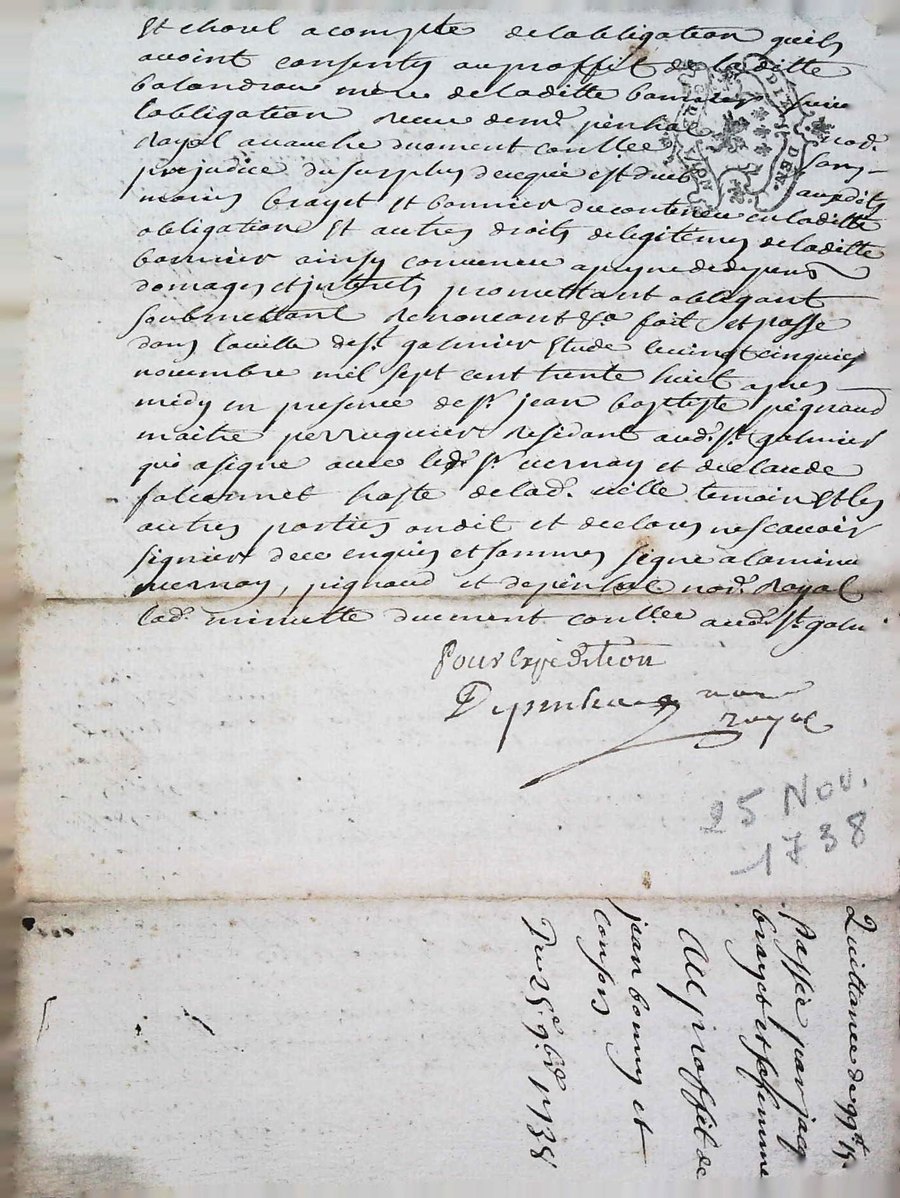 Et chorel acompte de lobligation quils
avoint consenty au proffit de laditte
balandrau mere de laditte bonnier
lobligation receu de me. penhal nod.
Royal avauche duement conllee sans
prejudice du surplus de ce quie est dub auxdits
maries brayet Et bonnier du contenu en laditte
obligation Et autres droits de legitemes de laditte
bonnier ainsy convenu apeyne de depens
domages et interets promettant obligeant
soubmettant Renoncant &a. fait et passe
dans la ville de st. galmier Etude le vingt cinquieme
novembre mil sept cent trente huit apres
midy en presence de sr. jean baptiste pignaud
maitre perruquier residant aud. st. galmier
qui a signe avec led. sr. vernay et de claude
hoste de lad. ville temoin Et les
autres parties on dit et declares nescavoir
signer de ce enquis et sommes signe a la minu
vernay, pignaud et depenhal nod. Royal
lad. minutte duement conllee aud. st. galm
Pour Expedition
Depenhal nore
royal
25 Nov.
1738
Quittance de 99 lt 15
Passée par jacq
brayet et sa femme
Au proffit de
jean bonny et
Consors
Du 25e 9bre 1738
DIE. R
DEN.